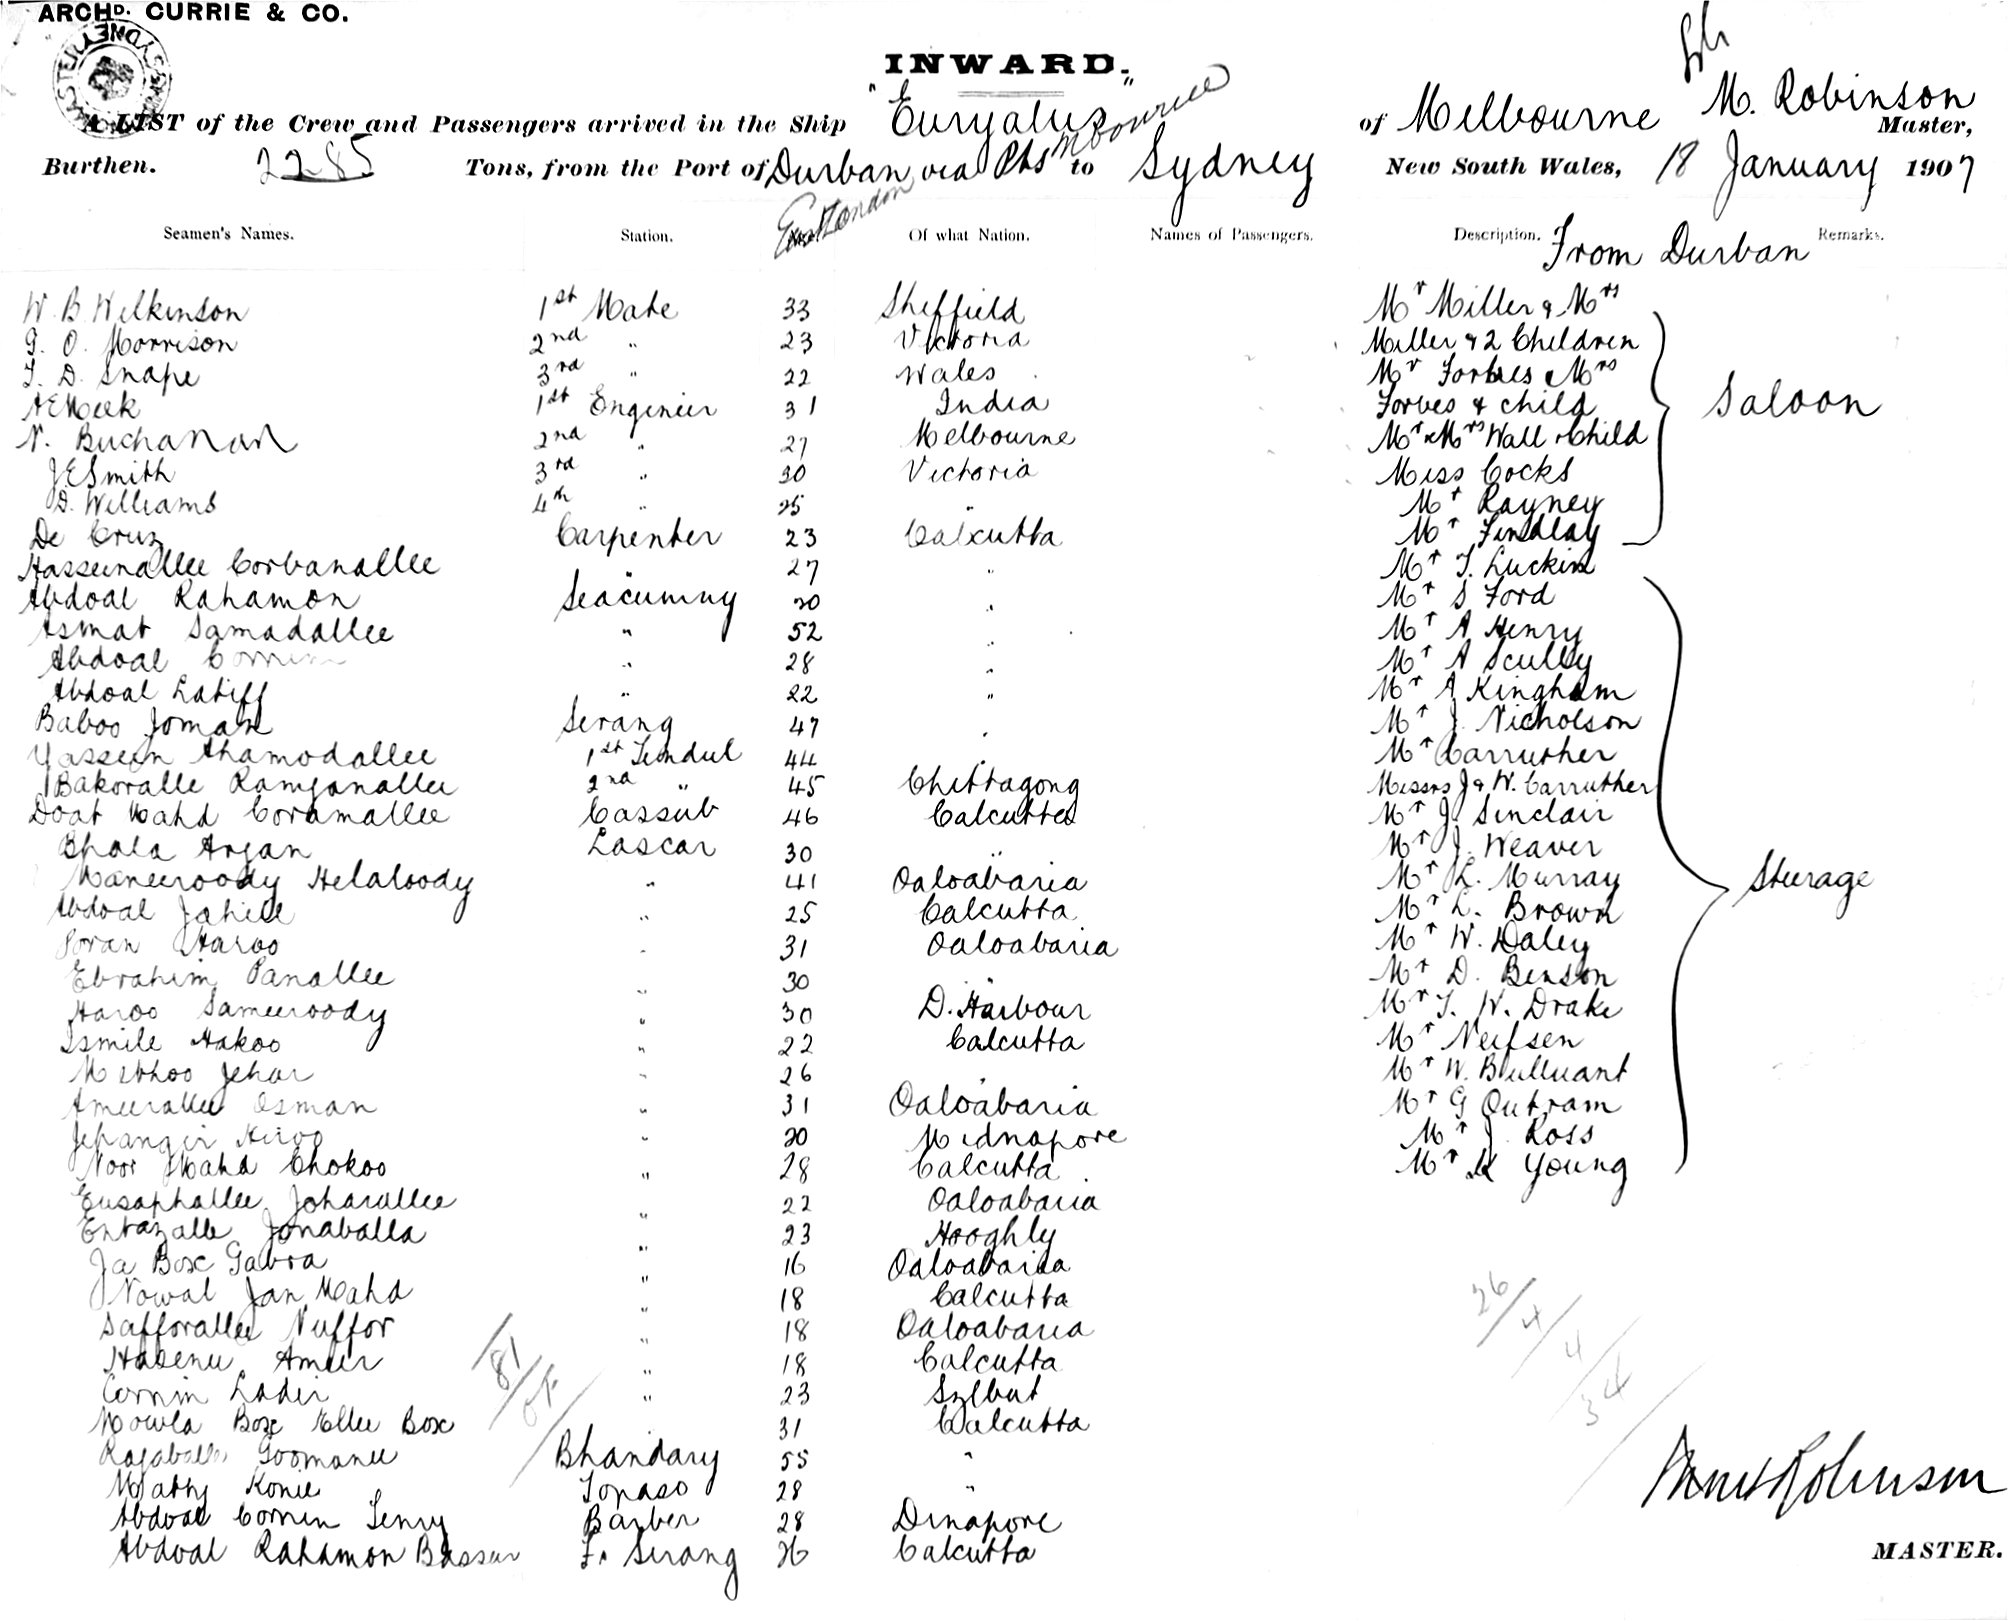 ARCHD. CURRIE & CO.
INWARD.
A LIST of the Crew and Passengers arrived in the Ship "Euryalus" of Melbourne M. Robinson Master,
Burthen. 2285 Tons, from the Port of Durban via Pts Melbourne to Sydney New South Wales, 18 January 1907
East London
Seamen's Names. Station. Of what Nation. Names of Passengers. Description. From Durban Remarks.
W. B. Wilkinson 1st Mate 33 Sheffield Mr Miller & Mrs
G. O. Morrison 2nd " 23 Victoria Miller & 2 Children
T. D. Snape 3rd " 22 Wales Mr Forbes & Mrs
A E Meek 1st Engineer 31 India Forbes & child Saloon
N. Buchanan 2nd " 27 Melbourne Mr & Mrs Wall & Child
J E Smith 3rd " 30 Victoria Miss Cocks
D. Williams 4th " 25 " Mr Rayney
De Cruz Carpenter 23 Calcutta Mr Findlay
Hasseenallee Corbanallee " 27 " Mr T. Luckin
Abdoal Rahamon Seacunny 30 " Mr S Ford
Asmat Samadallee " 52 " Mr A Henry
Abdoal " 28 " Mr A Scully
Abdoal Latiff " 22 " Mr A Kingham
Baboo Joman Serang 47 " Mr J. Nicholson
Yasseen Ahamodallee 1st Tendul 44 " Mr Carruther
Bakoralle Ramjanallee 2nd " 45 Chittagong Messrs J & W. Carruther
Doat Mahd Coramallee Cassub 46 Calcutta Mr J. Sinclair
Bhola Arjan Lascar 30 " Mr J. Weaver
Maneeroody Helaloody " 41 Oaloabaria Mr K. Murray Steerage
Abdoal Jahiel " 25 Calcutta Mr L. Brown
Haroo " 31 Oaloabaria Mr W. Daley
Ebrahim Panallee " 30 " Mr D. Benson
Haroo Sameeroody " 30 D. Harbour Mr T. W. Drake
Ismile Hakoo " 22 Calcutta Mr Neilsen
Jehar " 26 " Mr W. Bulluant
Ameerallee Osman " 31 Oaloabaria Mr G Outram
Jehangir Heroo " 20 Midnapore Mr J. Ross
Noor Mahd Chokoo " 28 Calcutta Mr Young
Eusaphallee Joharullee " 22 Oaloabaria
Entazalle Jonaballa " 23 Hooghly
Ja Box Gabra " 16 Oaloabaria
Nowal Jan Mahd " 18 Calcutta
Safforallee Nuffor " 18 Oaloabaria
Hasenu Ameer " 18 Calcutta
Cornin Ladir " 23 Sylhut
Mowla Box Ellee Box 31 Calcutta
Goomanee Bhandary 55 "
Matty Konie Topaso 28 "
Abdoal Cornin Tenry Barber 28 Dinapore
Abdoal Rahamon Bassur F. Serang 36 Calcutta
81
26
4
4
34
MASTER.